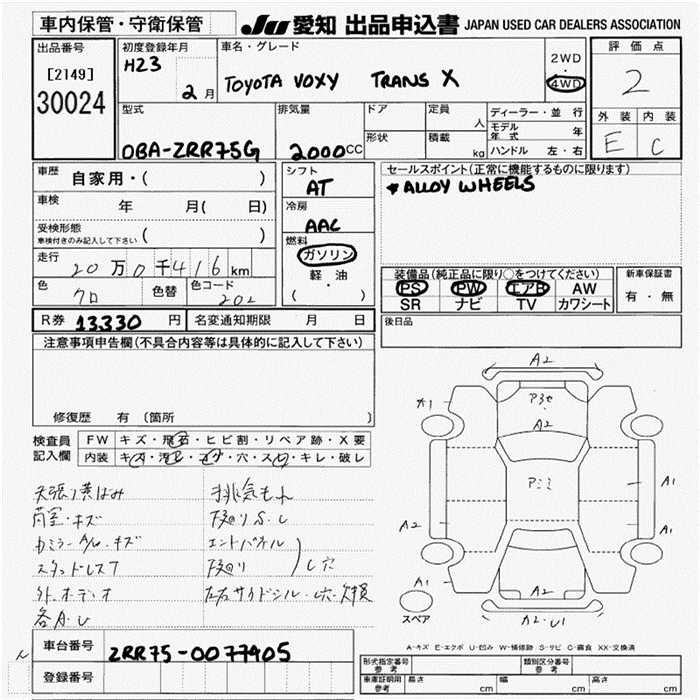 車内保管・守衛保管 JU 愛知 出品申込書 JAPAN USED CAR DEALERS ASSOCIATION
出品番号 初度登録年月 車名・グレード 評価点
[2149] H23 2月 TOYOTA VOXY TRANS X 2WD・4WD 2
30024
型式 排気量 ドア 定員 人 ディーラー・並行 外装 内装
形状 積載 kg モデル年式 年
DBA-ZRR75G 2000CC ハンドル 左・右 E C
車歴 自家用・( ) シフト セールスポイント(正常に機能するものに限ります)
AT * ALLOY WHEELS
車検 年 月( 日) 冷房
AAC
受検形態 ( )
車検付きのみ記入して下さい
燃料
ガソリン
軽・油
( )
走行 20万0千416km
装備品(純正品に限り○をつけてください) 新車保証書
色 クロ 色替 色コード 202
PS PW エアB AW 有・無
SR ナビ TV カワシート
R券 13330円 名変通知期限 月 日 後日品
注意事項申告欄(不具合内容等は具体的に記入して下さい)
修復歴 有 〔箇所
検査員記入欄 FW キズ・飛石・ヒビ割・リペア跡・X要
内装 キズ・汚レ・コゲ・穴・スレ・キレ・破レ
A2
A1
A2
A1
A2
A1
A1
A2
A2・U1
スペア
排気もれ
スタッドレス7
エントパネル
外.オーディオ
左右サイドシル
A-キズ E-エクボ U-凹み W-補修跡 S-サビ C-腐食 XX-交換済
車台番号 ZRR75-0077905
登録番号
形式指定番号 参考 類別区分番号 参考
車庫証明用 参考 長さ cm 幅 cm 高さ cm